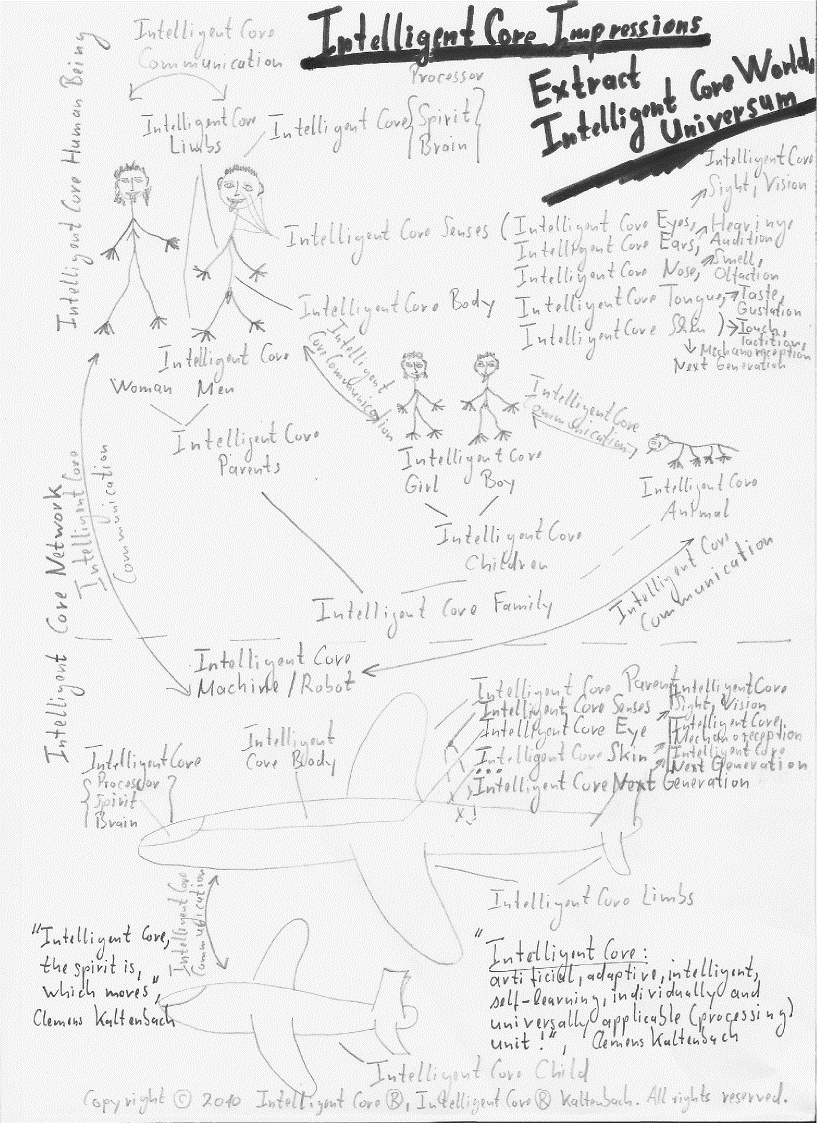 Intelligent Core Impressions
Extract
Intelligent Core World,
Universum
Intelligent Core Human Being
Intelligent Core
Communication
Intelligent Core
Limbs
Intelligent Core
Processor
Spirit
Brain
Intelligent Core Senses (Intelligent Core Eyes,
Intelligent Core
Sight, Vision
Intelligent Core Ears,
Hearing,
Audition
Intelligent Core Nose,
Smell,
Olfaction
Intelligent Core Tongue,
Taste,
Gustation
Intelligent Core Skin)
Touch,
Taction,
Mechanoreception
Next Generation
Intelligent Core Body
Intelligent Core
Woman Men
Intelligent
Core Communication
Intelligent Core
Parents
Intelligent Core
Girl Boy
Intelligent Core
Communication
Intelligent Core
Animal
Intelligent Core
Children
Intelligent Core Family
Intelligent Core
Communication
Intelligent Core Network
Intelligent Core
Communication
Intelligent Core
Machine/Robot
Intelligent Core Parent
Intelligent Core Senses
Intelligent Core
Sight, Vision
Intelligent Core Eye
Intelligent Core
Mechanoreception
Intelligent Core Skin
Intelligent Core
Next Generation
...
Intelligent Core Next Generation
Intelligent Core
Processor
Spirit
Brain
Intelligent
Core Body
Intelligent Core Limbs
Intelligent Core
Communication
"Intelligent Core,
the spirit is,
which moves",
Clemens Kaltenbach
"Intelligent Core:
artificial, adaptive, intelligent,
self-learning, individually and
universally applicable (processing)
unit!", Clemens Kaltenbach
Intelligent Core Child
Copyright © 2010 Intelligent Core®, Intelligent Core® Kaltenbach. All rights reserved.